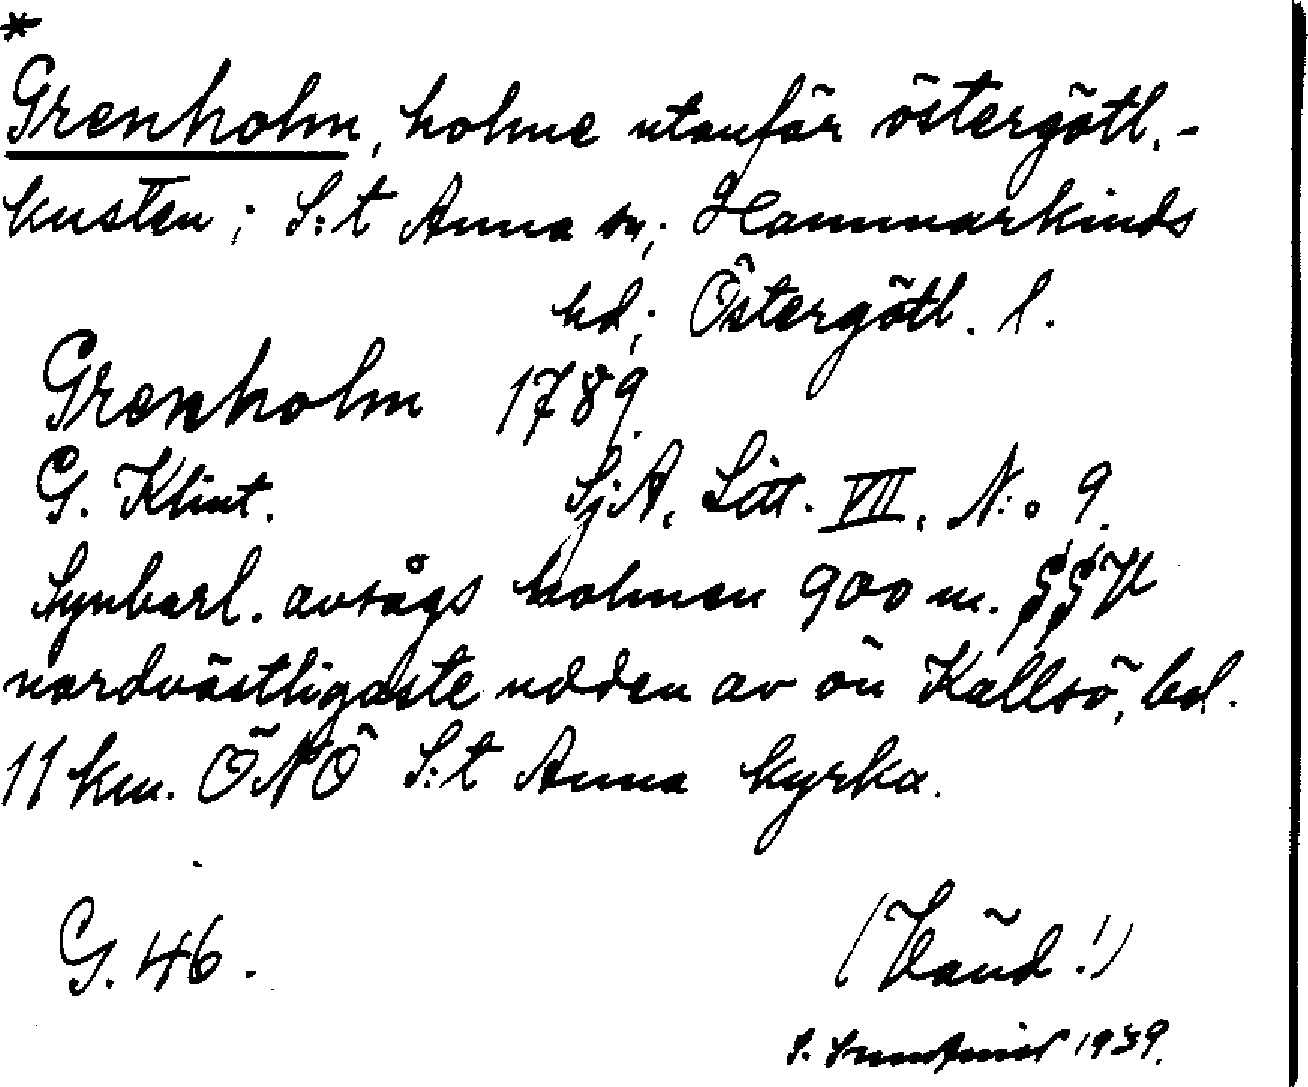 *
Grenholm, holme utanför östergötl.-
kusten; S:t Anna sn; Hammarkinds
hd; Östergötl. l.
Grenholm 1789.
G. Klint. SjA, Litt. VII, N:o 9.
Synbarl. avsågs holmen 900 m. SSV
nordvästligaste udden av ön Kallsö, bel.
11 km. ÖNÖ S:t Anna kyrka.
G. 46.
(Vänd!)
S. 1939.